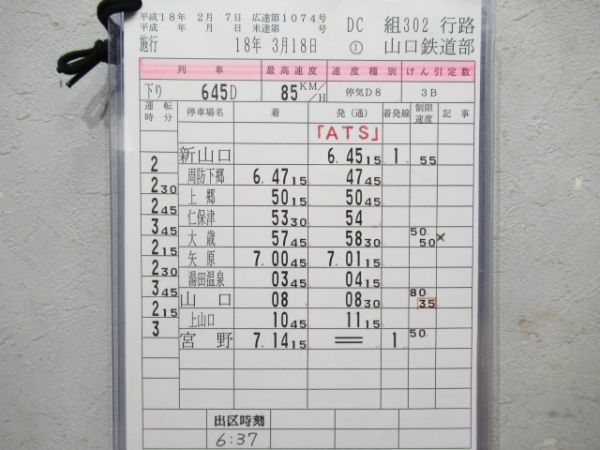 平成18年 2月 7日 広達第1074号 DC 組302 行路
平成 年 月 日 米達第 号
施行 18年 3月18日 ① 山口鉄道部
列車 最高速度 速度種別 けん引定数
下り 645D 85KM/H 停気D8 3B
運転時分 停車場名 着 発(通) 着発線 制限速度 記事
「ATS」
新山口 6.45 15 1 55
2
周防下郷 6.47 15 47 45
2 30
上郷 50 15 50 45
2 45
仁保津 53 30 54
3 45
大歳 57 45 58 30 50 50 ×
2 15
矢原 7.00 45 7.01 15
2 30
湯田温泉 03 45 04 15
3 45
山口 08 08 30 80 35
2 15
上山口 10 45 11 15
3
宮野 7.14 15 = 1 50
出区時刻
6:37